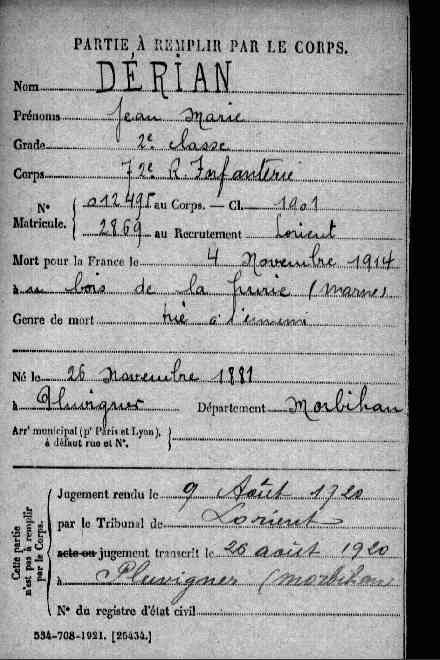 PARTIE À REMPLIR PAR LE CORPS.
Nom DÉRIAN
Prénoms Jean Marie
Grade 2e classe
Corps 72e R. Infanterie
N° Matricule. { 012495 au Corps. — Cl. 1901
2869 au Recrutement Lorient
Mort pour la France le 4 Novembre 1914
à au bois de la Grurie (Marne)
Genre de mort tué à l'ennemi
Né le 26 Novembre 1881
à Pluvigner Département Morbihan
Arrt municipal (pr Paris et Lyon), à défaut rue et N°. }
Cette partie n'est pas à remplir par le Corps.
Jugement rendu le 9 Août 1920
par le Tribunal de Lorient
acte ou jugement transcrit le 26 août 1920
à Pluvigner (Morbihan)
N° du registre d'état civil
534-708-1921. [26434.]